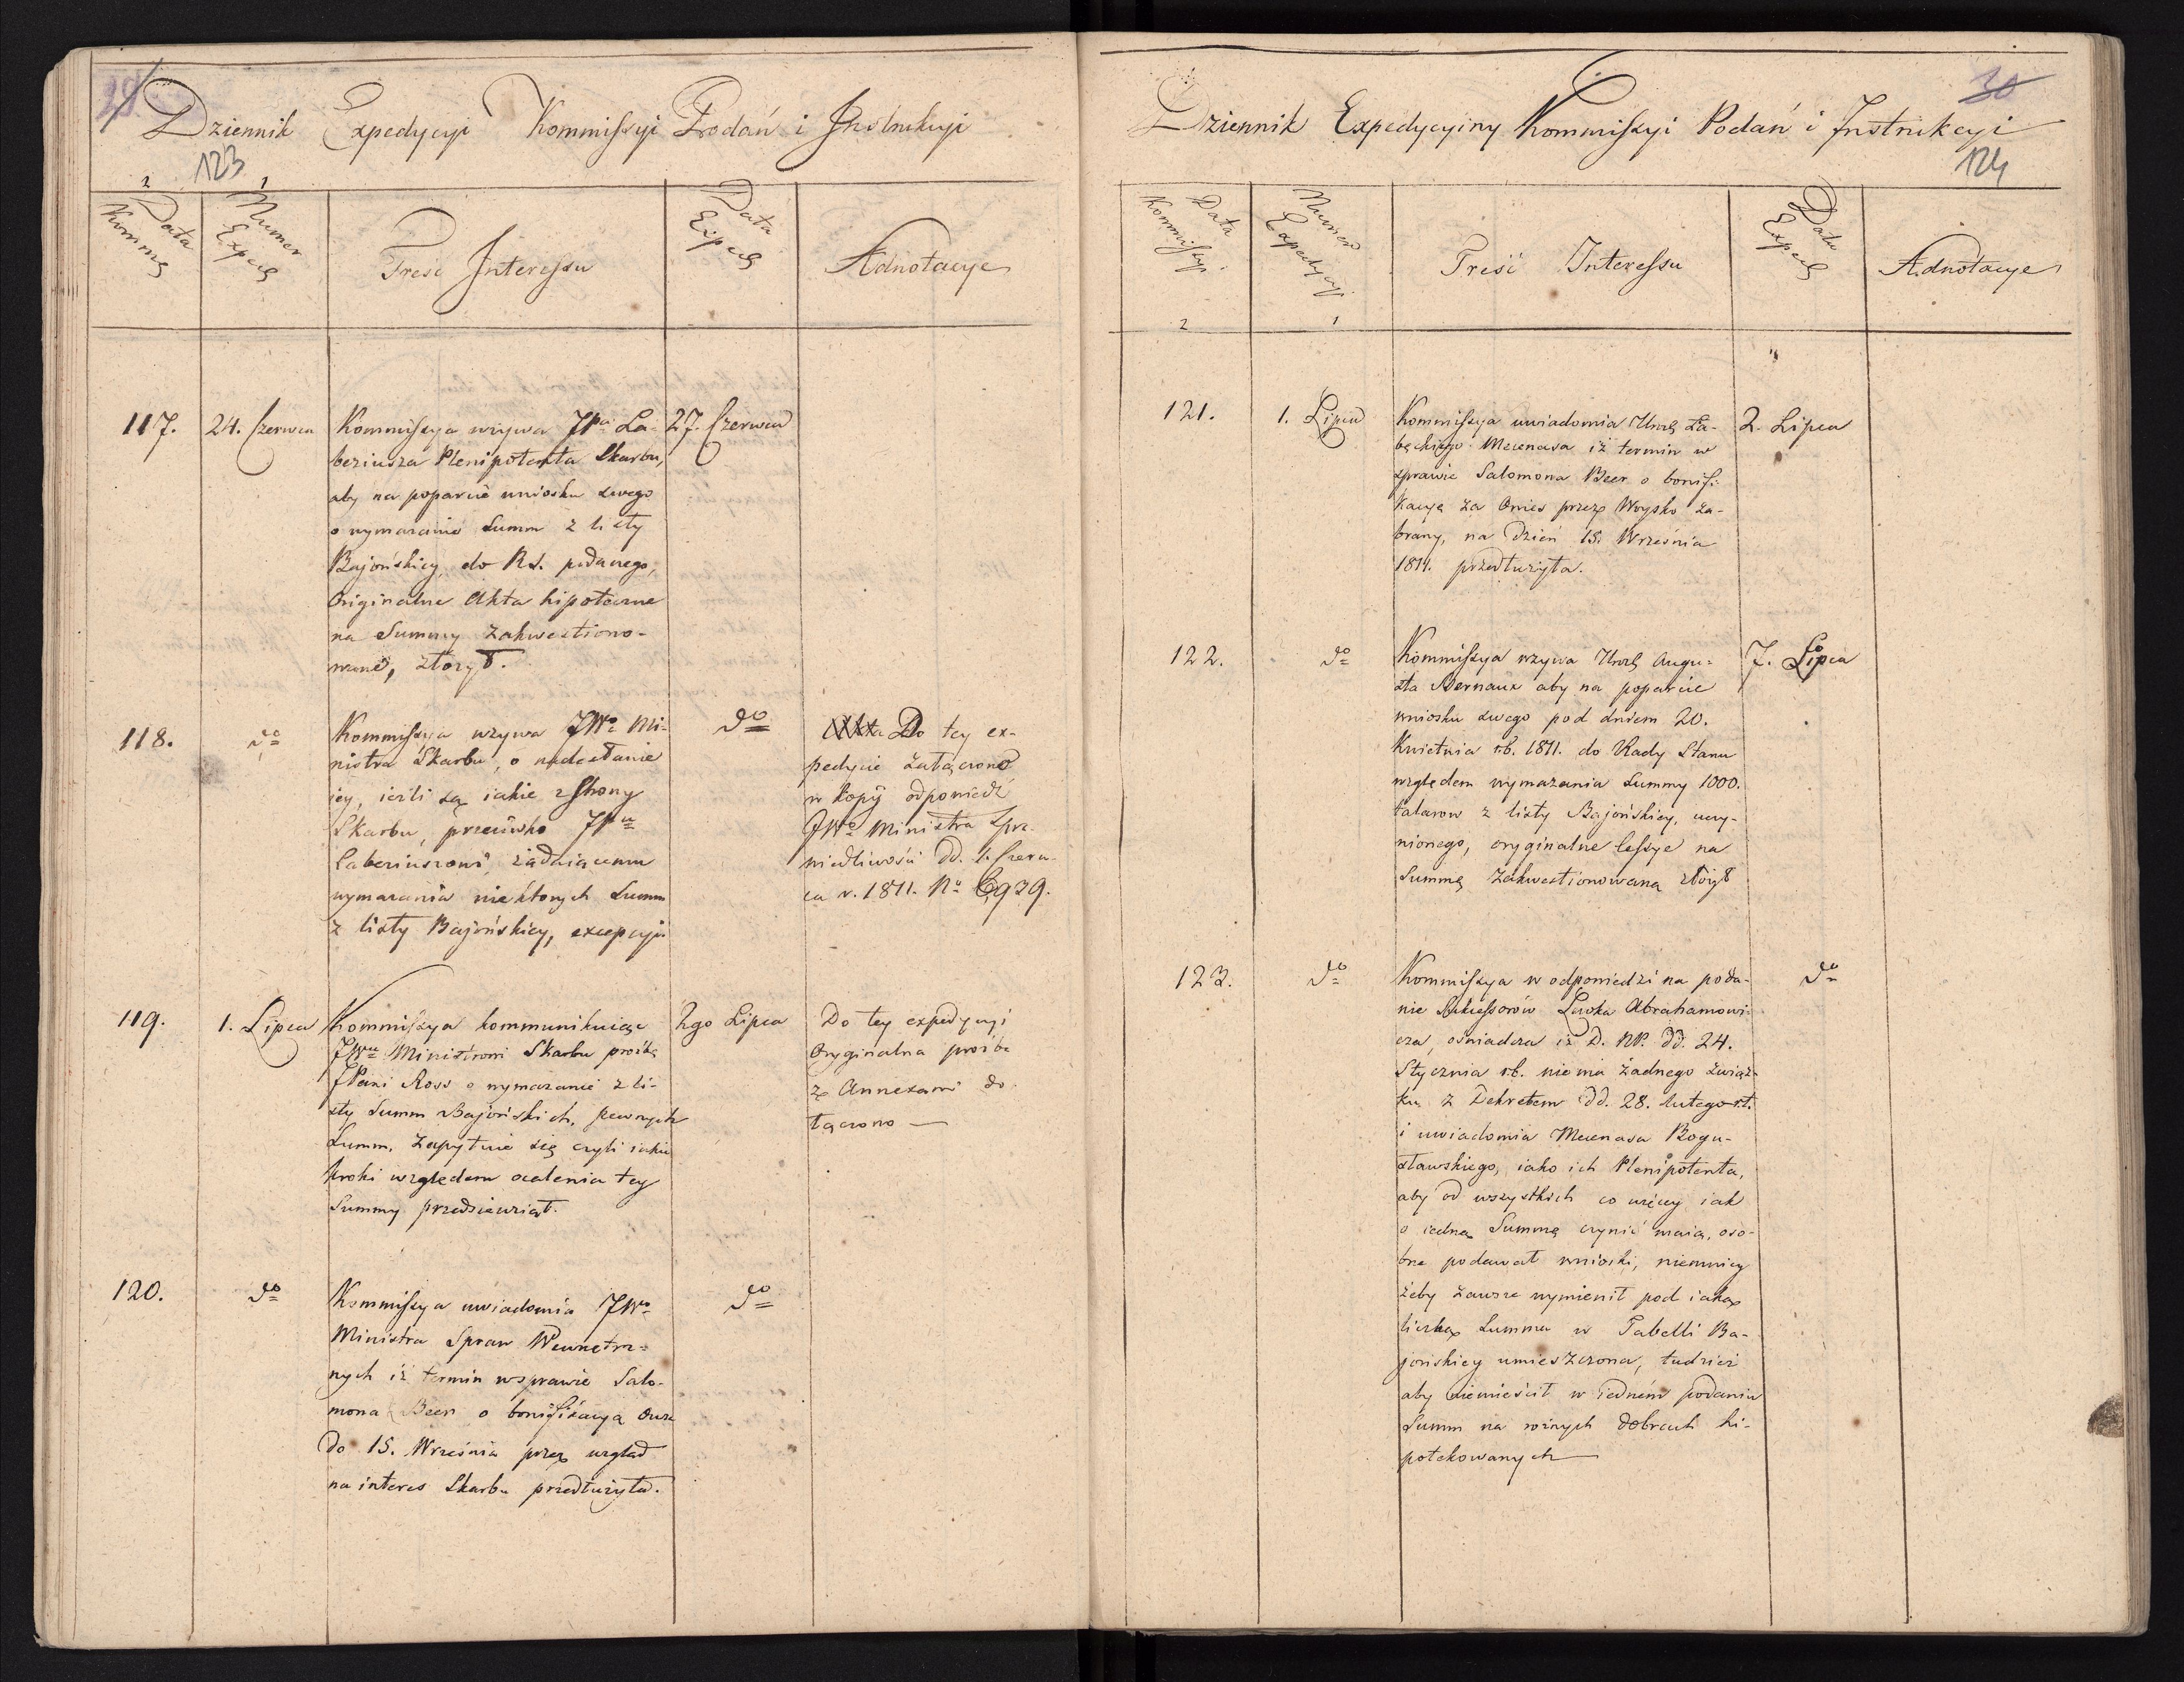 29
Dziennik Expedycyi Kommissyi Podań i Instrukcyi
123
2 1
Data Kommis
Numer Exped
Treść Interessu
Data Exped
Adnotacye
117. 24. Czerwca
Kommissya wzywa JPa La-
beriusza Plenipotenta Skarbu,
aby na poparcie wniosku swego
o wymazanie Summ z listy
Bajońskiey, do R.S. podanego,
Originalne Akta hipoteczne
na Summy zakwestiono-
wane, złożył.
27. Czerwca
118. do
Kommissya wzywa JWo Mi-
nistra Skarbu, o nadesłanie
iey, ieśli są iakie z strony
Skarbu, przeciwko JPu
Laberiuszowi, żądaiącemu
wymazania niektórych Summ
z listy Bajońskiey, excepcyi.
do
Do tey ex-
pedycie załączono
w kopij odpowiedź
JWo Ministra Spra-
wiedliwości dd. 1. Czerw-
ca r. 1811. No 6939.
119. 1. Lipca
Kommissya kommunikuiąc
JWu Ministrowi Skarbu prośbę
JPani Ross o wymazanie z li-
sty Summ Bajońskich, pewnych
Summ, zapytuie się czyli iakie
kroki względem ocalenia tey
Summy przedsiewziął.
2go Lipca
Do tey expedycyi
Oryginalna prośba
z Annexami do-
łączono —
120. do
Kommissya uwiadomia JWo
Ministra Spraw Wewnętrz-
nych iż termin w sprawie Salo-
mona Beer o bonifikacyą Owsa
do 15. Września przez wzgląd
na interes Skarbu przedłużyła.
do
30
Dziennik Expedycyiny Kommissyi Podań i Instrukcyi
124
Data Kommissyi
Numer Expedycyi
Treść Interessu
Data Exped
Adnotacye
2 1
121. 1. Lipca
Kommissya uwiadomia Urod. Ła-
bęckiego Mecenasa iż termin w
sprawie Salomona Beer o bonifi-
kacyą za Owies przez Woysko za-
brany, na dzień 15. Września
1811. przedłużyła.
2. Lipca
122. do
Kommissya wzywa Urod. Augu-
sta Bernaux aby na poparcie
wniosku swego pod dniem 20.
Kwietnia r.b. 1811. do Rady Stanu
względem wymazania Summy 1000.
talarow z listy Bajońskiey, uczy-
nionego, oryginalne Cessye na
Summę zakwestionowaną złożył
7. Lipca
123. do
Kommissya w odpowiedzi na poda-
nie Sukcessorów Lewka Abrahamowi-
cza, oświadcza iż D. NP. dd. 24.
Stycznia r.b. niema żadnego związ-
ku z Dekretem dd. 28. Lutego r.t.
i uwiadomia Mecenasa Bogu-
sławskiego, iako ich Plenipotenta,
aby od wszystkich co więcey iak
o iedną Summę czynić maią, oso-
bne podawał wnioski, niemniey
żeby zawsze wymienił pod iaką
liczbą Summa w Tabelli Ba-
jońskiey umieszczona, tudzież
aby niemieścił w iedném podaniu
Summ na różnych dobrach hi-
potekowanych —
do